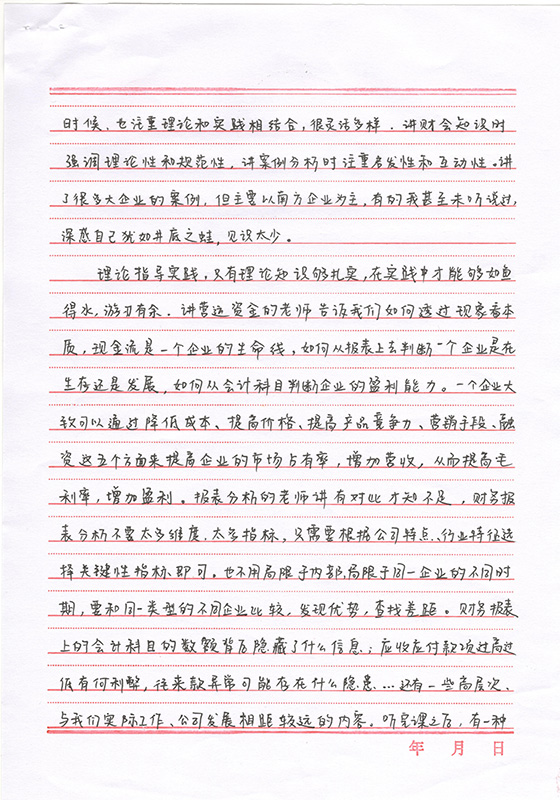 时候、也注重理论和实践相结合，很灵活多样．讲财会知识时
强调理论性和规范性，讲案例分析时注重启发性和互动性。讲
了很多大企业的案例，但主要以南方企业为主，有的我甚至未听说过，
深感自己犹如井底之蛙，见识太少。
理论指导实践，只有理论知识够扎实，在实践中才能够如鱼
得水，游刃有余．讲营运资金的老师告诉我们如何透过现象看本
质，现金流是一个企业的生命线，如何从报表上去判断一个企业是在
生存还是发展，如何从会计科目判断企业的盈利能力。一个企业大
致可以通过降低成本、提高价格、提高产品竞争力、营销手段、融
资这五个方面来提高企业的市场占有率，增加营收，从而提高毛
利率，增加盈利。报表分析的老师讲有对比才知不足，财务报
表分析不要太多维度．太多指标，只需要根据公司特点、行业特征选
择关键性指标即可。也不用局限于内部，局限于同一企业的不同时
期，要和同一类型的不同企业比较，发现优势，查找差距。财务报表
上的会计科目的数额背后隐藏了什么信息；应收应付款项过高过
低有何利弊，往来款异常可能存在什么隐患…还有一些高层次、
与我们实际工作、公司发展相距较远的内容。听完课之后，有一种
年 月 日